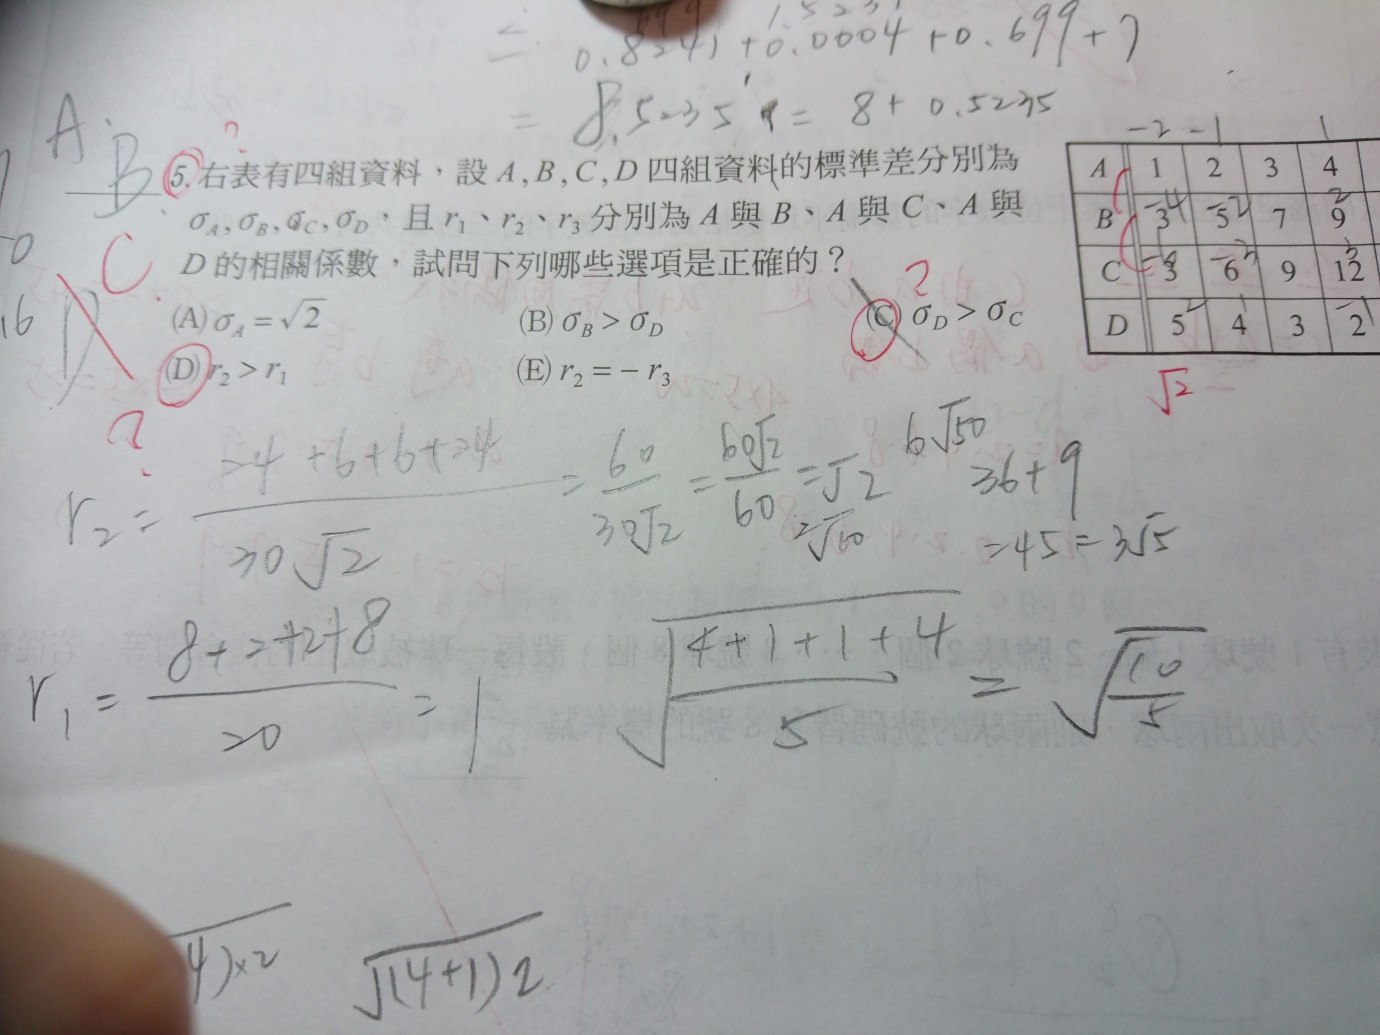 0.8241+0.0004+0.699+7
= 8.5235 = 8+0.5235
A.
B
C
D
?
5. 右表有四組資料，設 A, B, C, D 四組資料的標準差分別為
σA, σB, σC, σD，且 r1、r2、r3 分別為 A 與 B、A 與 C、A 與
D 的相關係數，試問下列哪些選項是正確的？
(A) σA = √2 (B) σB > σD (C) σD > σC
?
(D) r2 > r1 (E) r2 = – r3
?
-2 -1 1
A 1 2 3 4
B 3 5 7 9
-4 -2 2
C 3 6 9 12
D 5 4 3 2
2 1 -1
√2
r2 = 24+6+6+24 / 30√2 = 60 / 30√2 = 60√2 / 60 = √2
6√50
36+9
=45=3√5
r1 = 8+2+2+8 / 20 = 1
√(4+1+1+4 / 5) = √(10 / 5)
4)×2
√(4+1)2